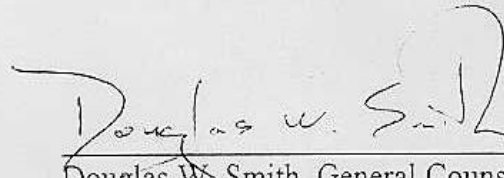 Douglas W. Smith
Douglas W. Smith, General Couns